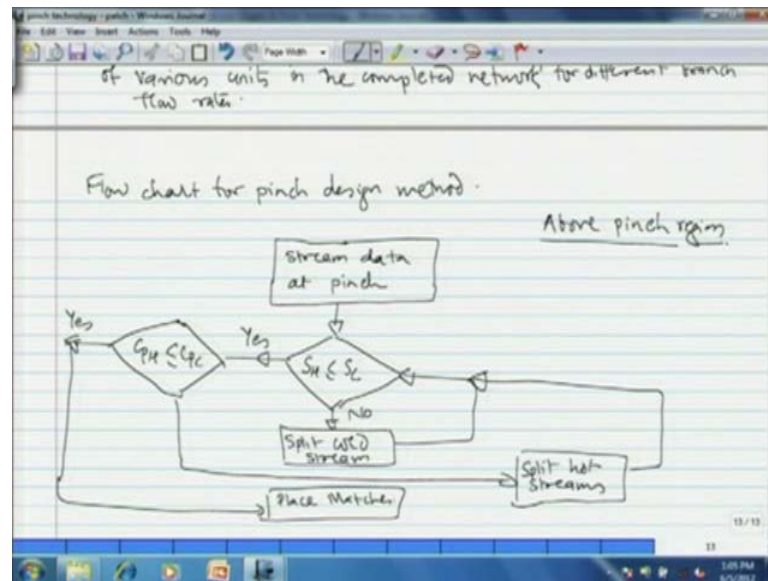 pinch technology - patch - Windows Journal
File Edit View Insert Actions Tools Help
Page Width
of various units in the completed network for different branch
flow rates.
Flow chart for pinch design method.
Above pinch region
stream data
at pinch
Yes
CPH ≤ CPC
Yes
SH ≤ SC
No
Split cold
stream
Split hot
streams
Place Matches
13/13
13
1:05 PM
6/5/2012